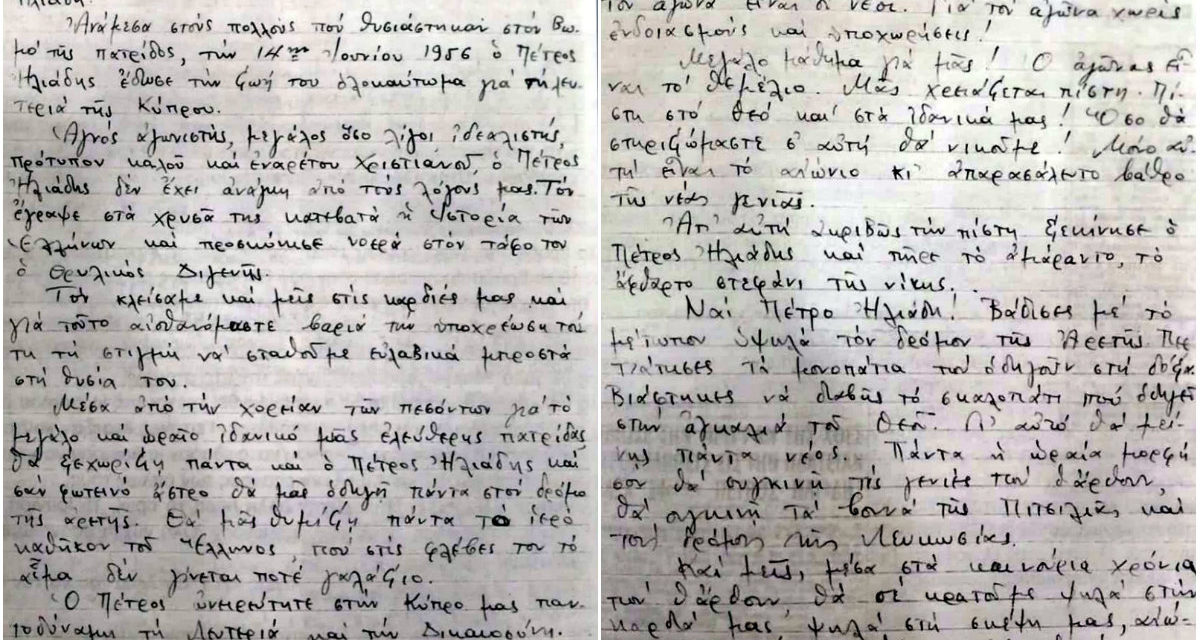 Ἀνάμεσα στούς πολλούς πού θυσιάστηκαν στόν βω-
μό τῆς πατρίδος, τήν 14ην Ἰουνίου 1956 ὁ Πέτρος
Ἠλιάδης ἔδωσε τήν ζωή του ὁλοκαύτωμα γιά τή λευ-
τεριά τῆς Κύπρου.
Ἁγνός ἀγωνιστής, μεγάλος ὅσο λίγοι ἰδεαλιστής,
πρότυπον καλοῦ καί ἐναρέτου Χριστιανοῦ, ὁ Πέτρος
Ἠλιάδης δέν ἔχει ἀνάγκη ἀπό τούς λόγους μας. Τόν
ἔγραψε στά χρυσᾶ της κατεβατά ἡ Ἱστορία τῶν
Ἑλλήνων καί προσκύνησε νοερά στόν τάφο του
ὁ θρυλικός Διγενής.
Τόν κλείσαμε καί μεῖς στίς καρδιές μας καί
γιά τοῦτο αἰσθανόμαστε βαριά τήν ὑποχρέωση τού-
τη τή στιγμή νά σταθοῦμε εὐλαβικά μπροστά
στή θυσία του.
Μέσα ἀπό τήν χορείαν τῶν πεσόντων γιά τό
μεγάλο καί ὡραῖο ἰδανικό μιᾶς ἐλεύθερης πατρίδας
θά ξεχωρίζη πάντα καί ὁ Πέτρος Ἠλιάδης καί
σάν φωτεινό ἄστρο θά μᾶς ὁδηγῆ πάντα στόν δρόμο
τῆς ἀρετῆς. Θά μᾶς θυμίζη πάντα τό ἱερό
καθῆκον τοῦ Ἕλληνος, πού στίς φλέβες του τό
αἷμα δέν γίνεται ποτέ γαλάζιο.
Ὁ Πέτρος ὠνειρεύτητε στήν Κύπρο μας παν-
τοδύναμη τή Λευτεριά καί τήν Δικαιοσύνη.
τόν ἀγῶνα εἶναι οἱ νέοι. Γιά τόν ἀγῶνα χωρίς
ἐνδοιασμούς καί ὑποχωρήσεις!
Μεγάλο μάθημα γιά μᾶς! Ὁ ἀγῶνας εἶ-
ναι τό θεμέλιο. Μᾶς χρειάζεται πίστη. Πί-
στη στό Θεό καί στά ἰδανικά μας! Ὅσο θά
στηριζώμαστε σ' αὐτή θά νικοῦμε! Μόνο αὐ-
τή εἶναι τό αἰώνιο κι' ἀπαρασάλευτο βάθρο
τῆς νέας γενιᾶς.
Ἀπ' αὐτή ἀκριβῶς τήν πίστη ξεκίνησε ὁ
Πέτρος Ἠλιάδης καί πῆρε τό ἀμάραντο, τό
ἄφθαρτο στεφάνι τῆς νίκης.
Ναί Πέτρο Ἠλιάδη! Βάδισες μέ τό
μέτωπον ὑψηλά τόν δρόμον τῆς Ἀρετῆς. Περ-
πάτησες τά μονοπάτια πού ὁδηγοῦν στή δόξα.
Βιάστηκες νά διαβῆς τό σκαλοπάτι πού ὁδηγεῖ
στήν ἀγκαλιά τοῦ Θεοῦ. Γι' αὐτό θά μεί-
νης πάντα νέος. Πάντα ἡ ὡραία μορφή
σου θά συγκινῆ τίς γενιές πού θἄρθουν,
θά συγκινῆ τά βουνά τῆς Πιτσιλιᾶς καί
τούς δρόμους τῆς Λευκωσίας.
Καί μεῖς, μέσα στά καινούρια χρόνια
πού θἄρθουν, θά σέ κρατοῦμε ψηλά στήν
καρδιά μας, ψηλά στή σκέψη μας, αἰώ-